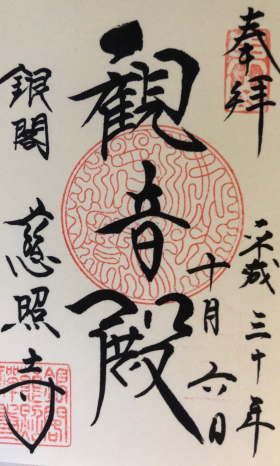 奉拝
平成三十年
十月六日
観音殿
銀閣 慈照寺